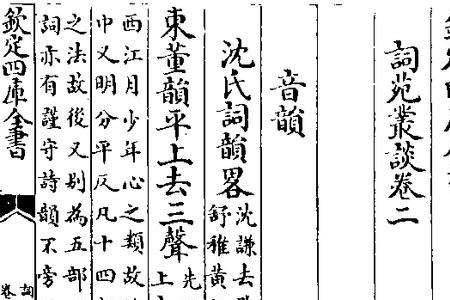 詞苑叢談卷二
音韻
沈氏詞韻畧
沈謙去
舒稚黃
東董韻平上去三聲
先
上
西江月少年心之類故
中又明分平仄凡十四
之法故後又別為五部
詞亦有謹守詩韻不旁
欽定四庫全書
詞
卷